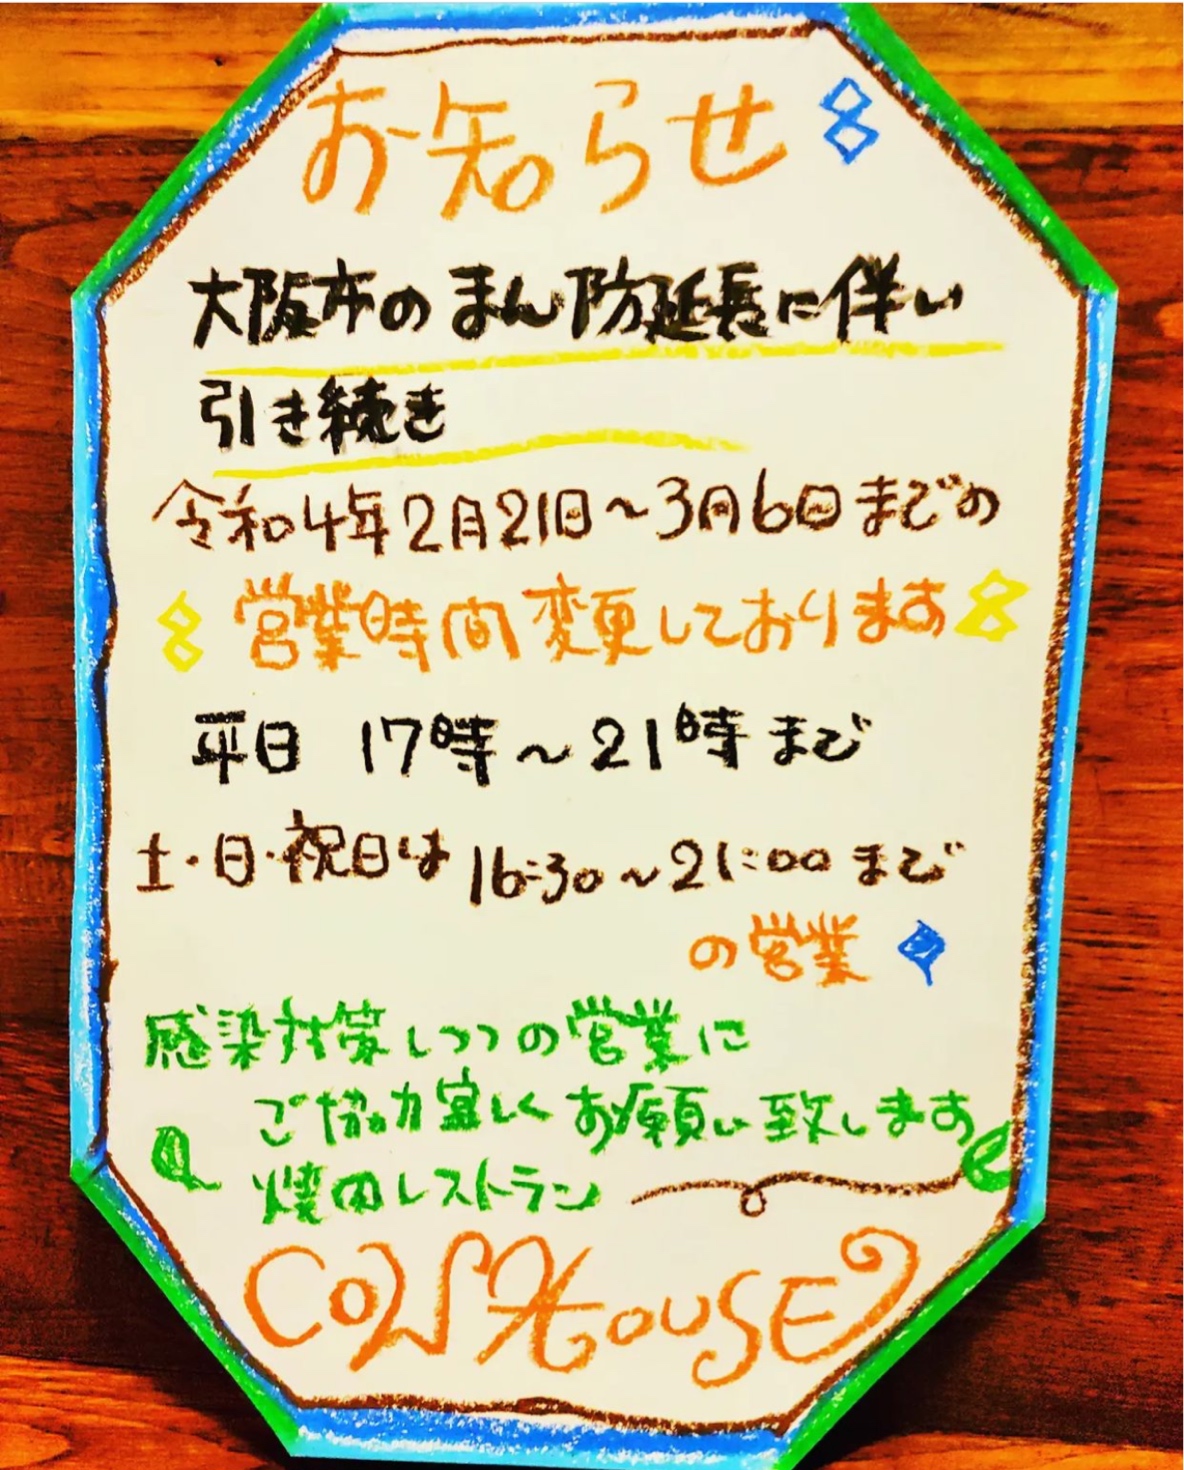 お知らせ
大阪市のまん防延長に伴い
引き続き
令和4年2月21日～3月6日までの
営業時間変更しております
平日 17時～21時まで
土・日・祝日は 16:30～21:00まで
の営業
感染対策しつつの営業に
ご協力宜しくお願い致します
焼肉レストラン
COWHOUSE